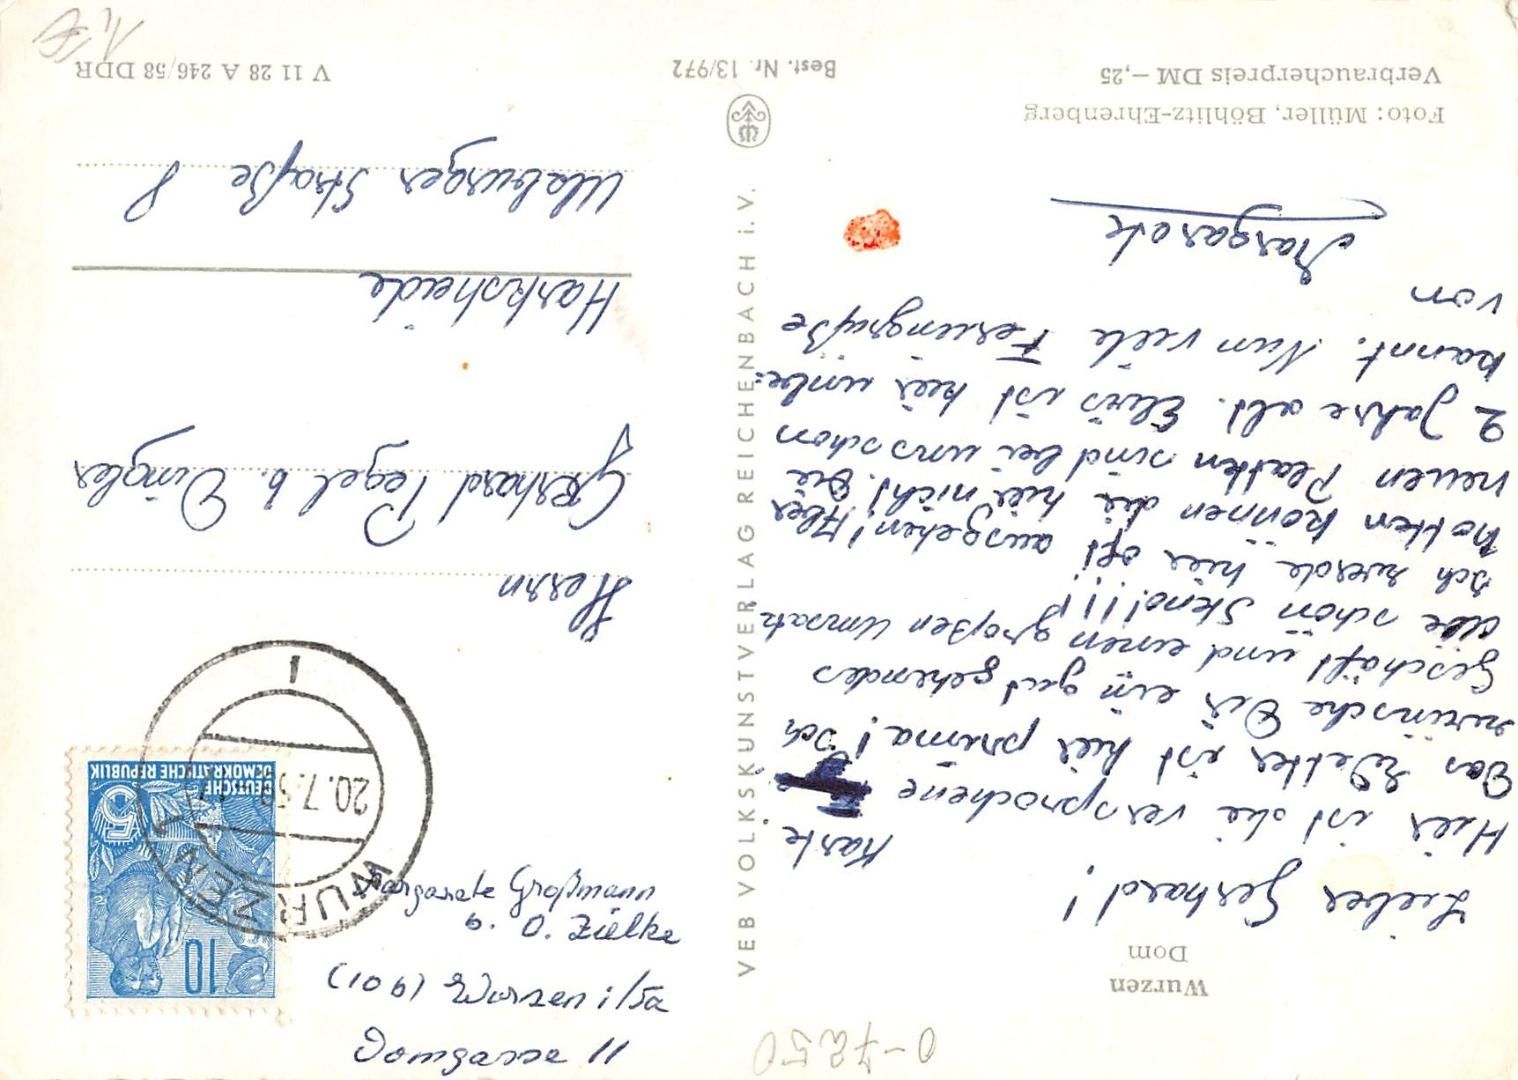 Wurzen
Dom
Lieber Gerhard!
Hier ist die versprochene Karte.
Das Wetter ist hier prima! Ich
wünsche Dir ein gut gehendes
Geschäft und einen großen Umsatz
schon Steno!!!!
Ich werde hier oft ausgehen! Aber
hotten können die hier nicht. Die
neuen Platten sind bei uns schon
2 Jahre alt. Elvis ist hier unbe-
kannt. Nun viele Feriengrüße
von
Margarete
Foto: Müller, Böhlitz-Ehrenberg
Verbraucherpreis DM -,25
VEB VOLKSKUNSTVERLAG REICHENBACH i. V.
Best. Nr. 13/972
Margarete Großmann
b. O. Zielke
(10b) Wurzen i/Sa
Domgasse 11
10
5
DEUTSCHE
DEMOKRATISCHE REPUBLIK
WURZEN 1
20.7.58
1
Herrn
Gerhard Pegel b. Dingler
Harksheide
Ulzburger Straße 8
V 11 28 A 246/58 DDR
0-7250